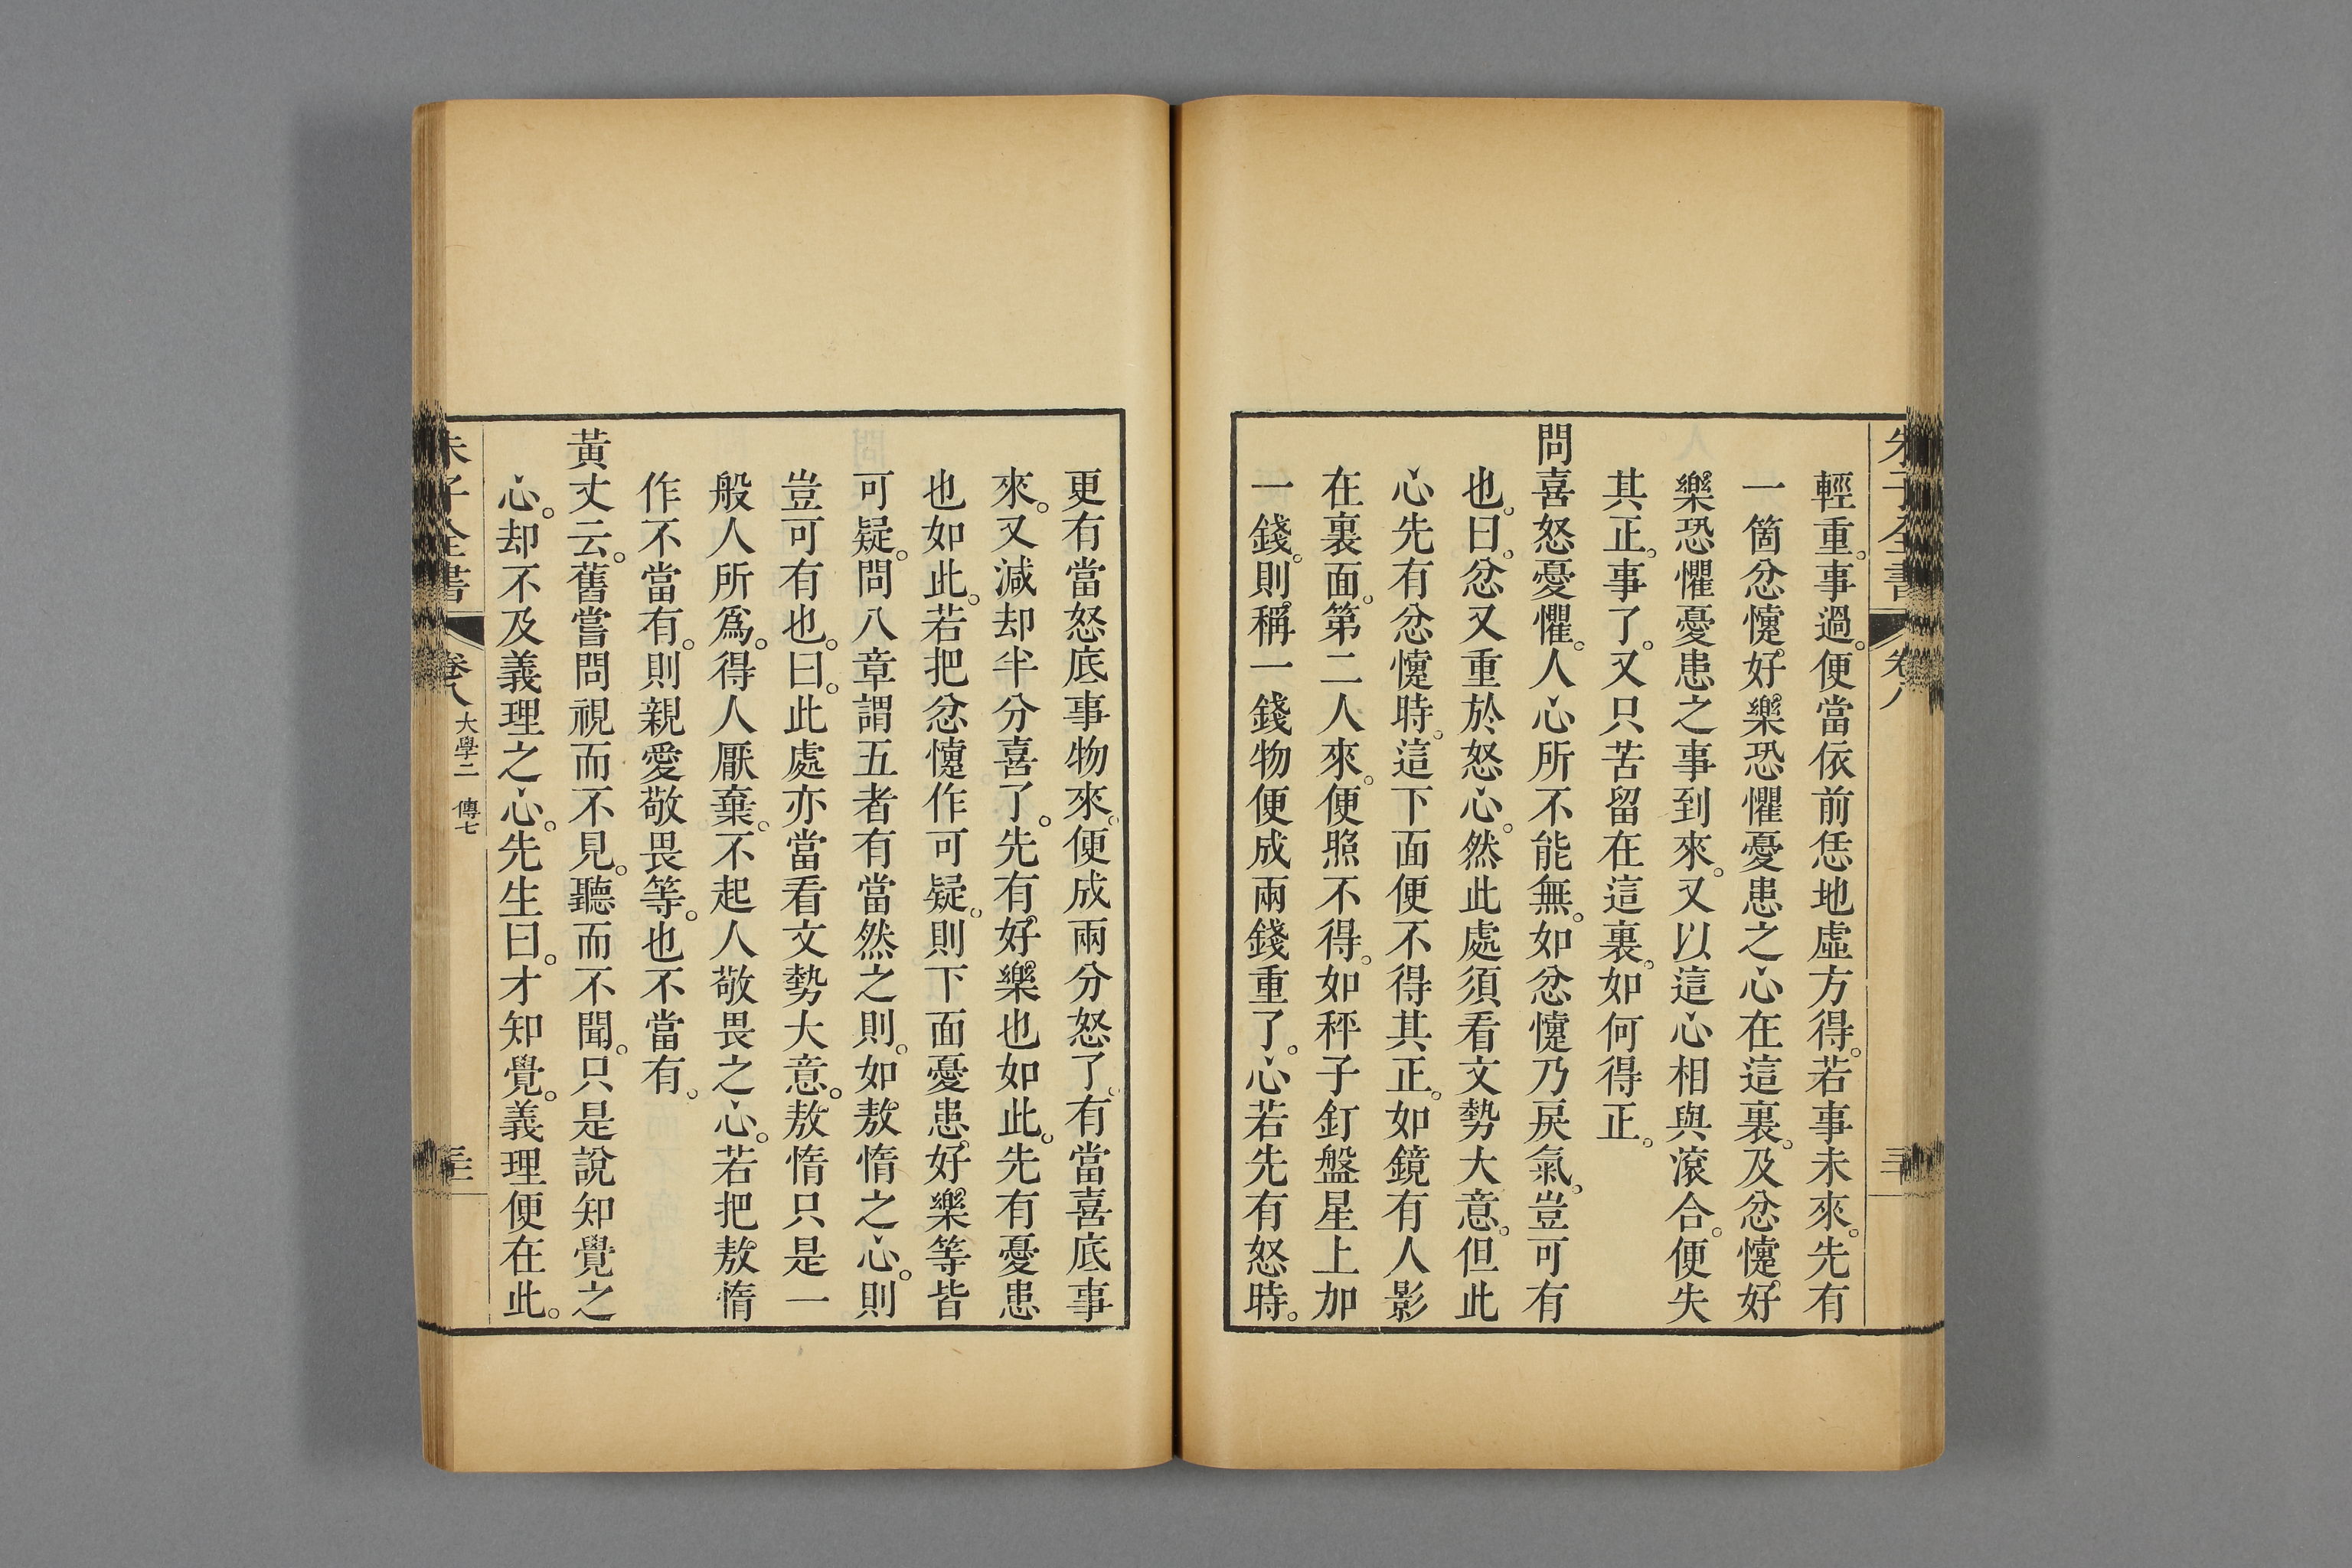 朱子全書 卷八
輕重。事過。便當依前恁地虛方得。若事未來。先有
一箇忿懥。好樂恐懼憂患之心在這裏。及忿懥。好
樂恐懼憂患之事到來。又以這心相與滾合。便失
其正。事了。又只苦留在這裏。如何得正。
問喜怒憂懼。人心所不能無。如忿懥乃戾氣。豈可有
也。曰。忿又重於怒心。然此處須看文勢大意。但此
心先有忿懥時。這下面便不得其正。如鏡有人影
在裏面。第二人來。便照不得。如秤子釘盤星上加
一錢。則稱一錢物便成兩錢重了。心若先有怒時。
更有當怒底事物來。便成兩分怒了。有當喜底事
來。又減却半分喜了。先有好樂也如此。先有憂患
也如此。若把忿懥作可疑。則下面憂患。好樂等皆
可疑。問八章謂五者有當然之則。如敖惰之心。則
豈可有也。曰。此處亦當看文勢大意。敖惰只是一
般人所爲。得人厭棄。不起人敬畏之心。若把敖惰
作不當有。則親愛敬畏等。也不當有。
黃丈云。舊嘗問視而不見。聽而不聞。只是說知覺之
心。却不及義理之心。先生曰。才知覺。義理便在此。
朱子全書 卷八 大學二 傳七